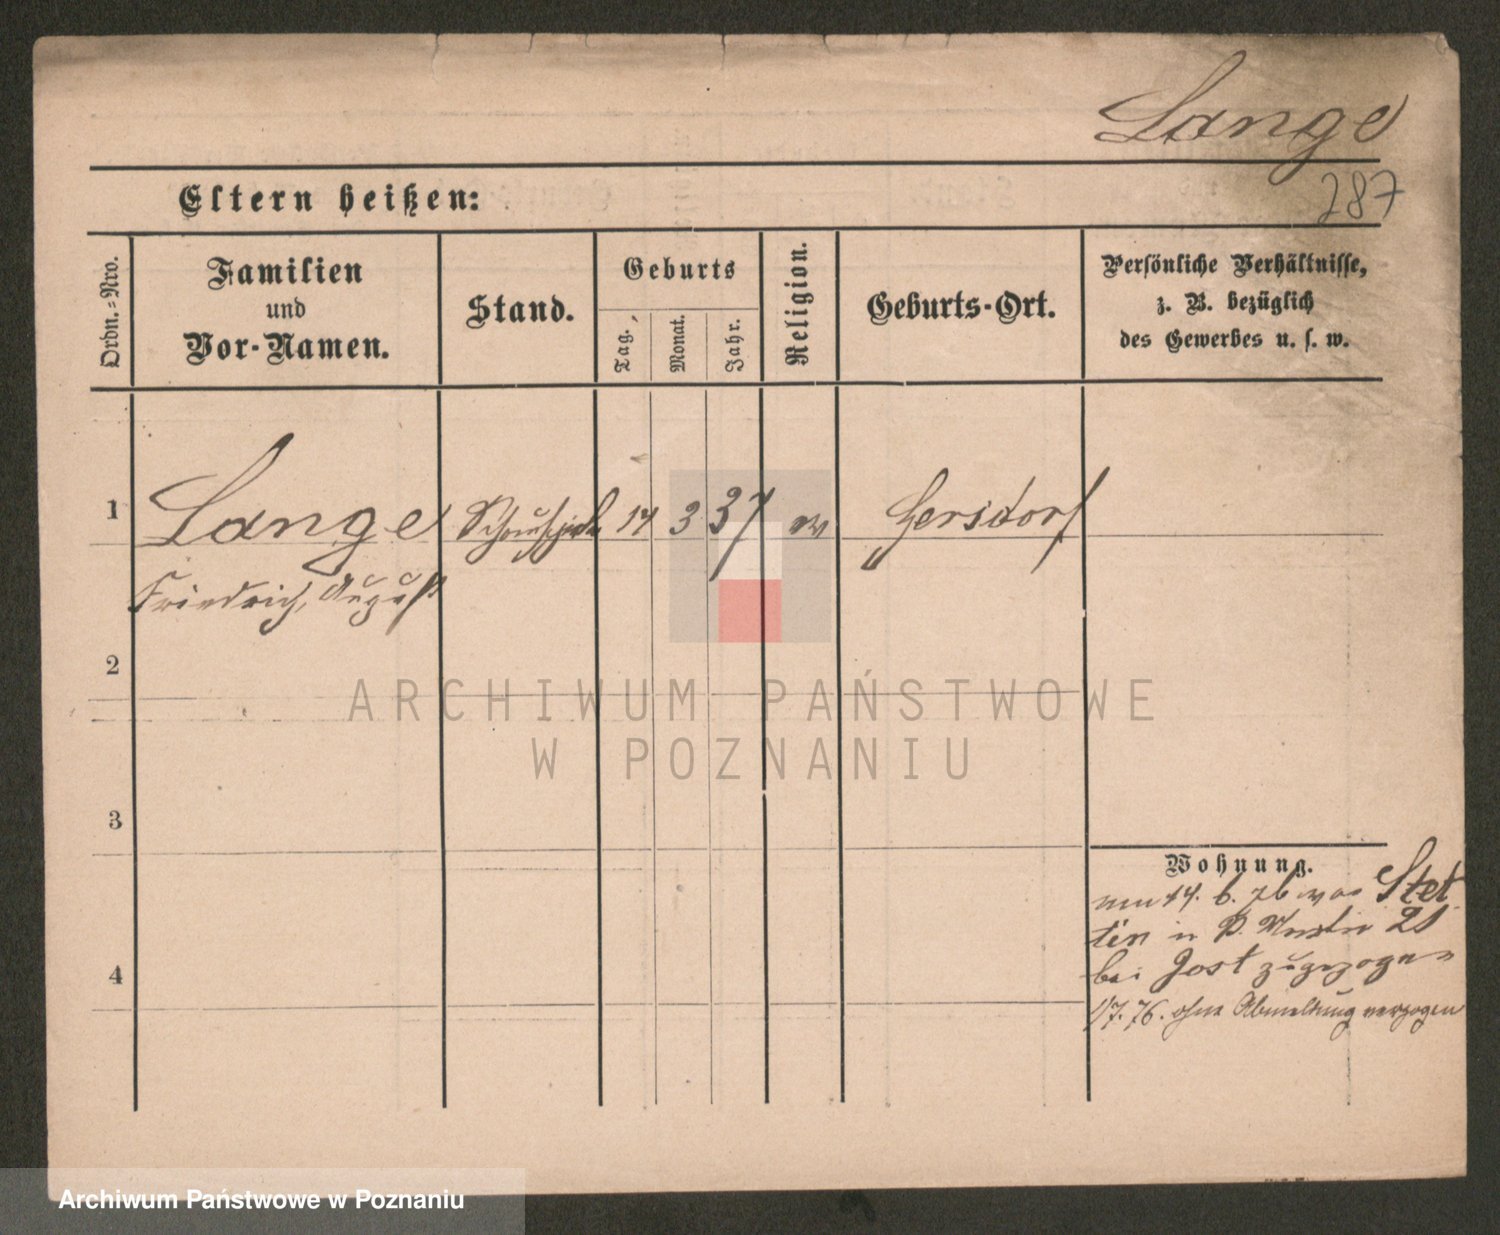 Lange
287
Eltern heißen:
Ordn.-Nro.
Familien
und
Vor-Namen.
Stand.
Geburts
Tag.
Monat.
Jahr.
Religion.
Geburts-Ort.
Persönliche Verhältnisse,
z. B. bezüglich
des Gewerbes u. s. w.
1
Lange
14
3
37
ev
Gersdorf
Friedrich, August
2
ARCHIWUM PAŃSTWOWE
W POZNANIU
3
Wohnung.
14. 6. 76 von Stet
tin in 21
bei Jost zugezogen
4
17. 76. ohne Abmeldung verzogen
Archiwum Państwowe w Poznaniu